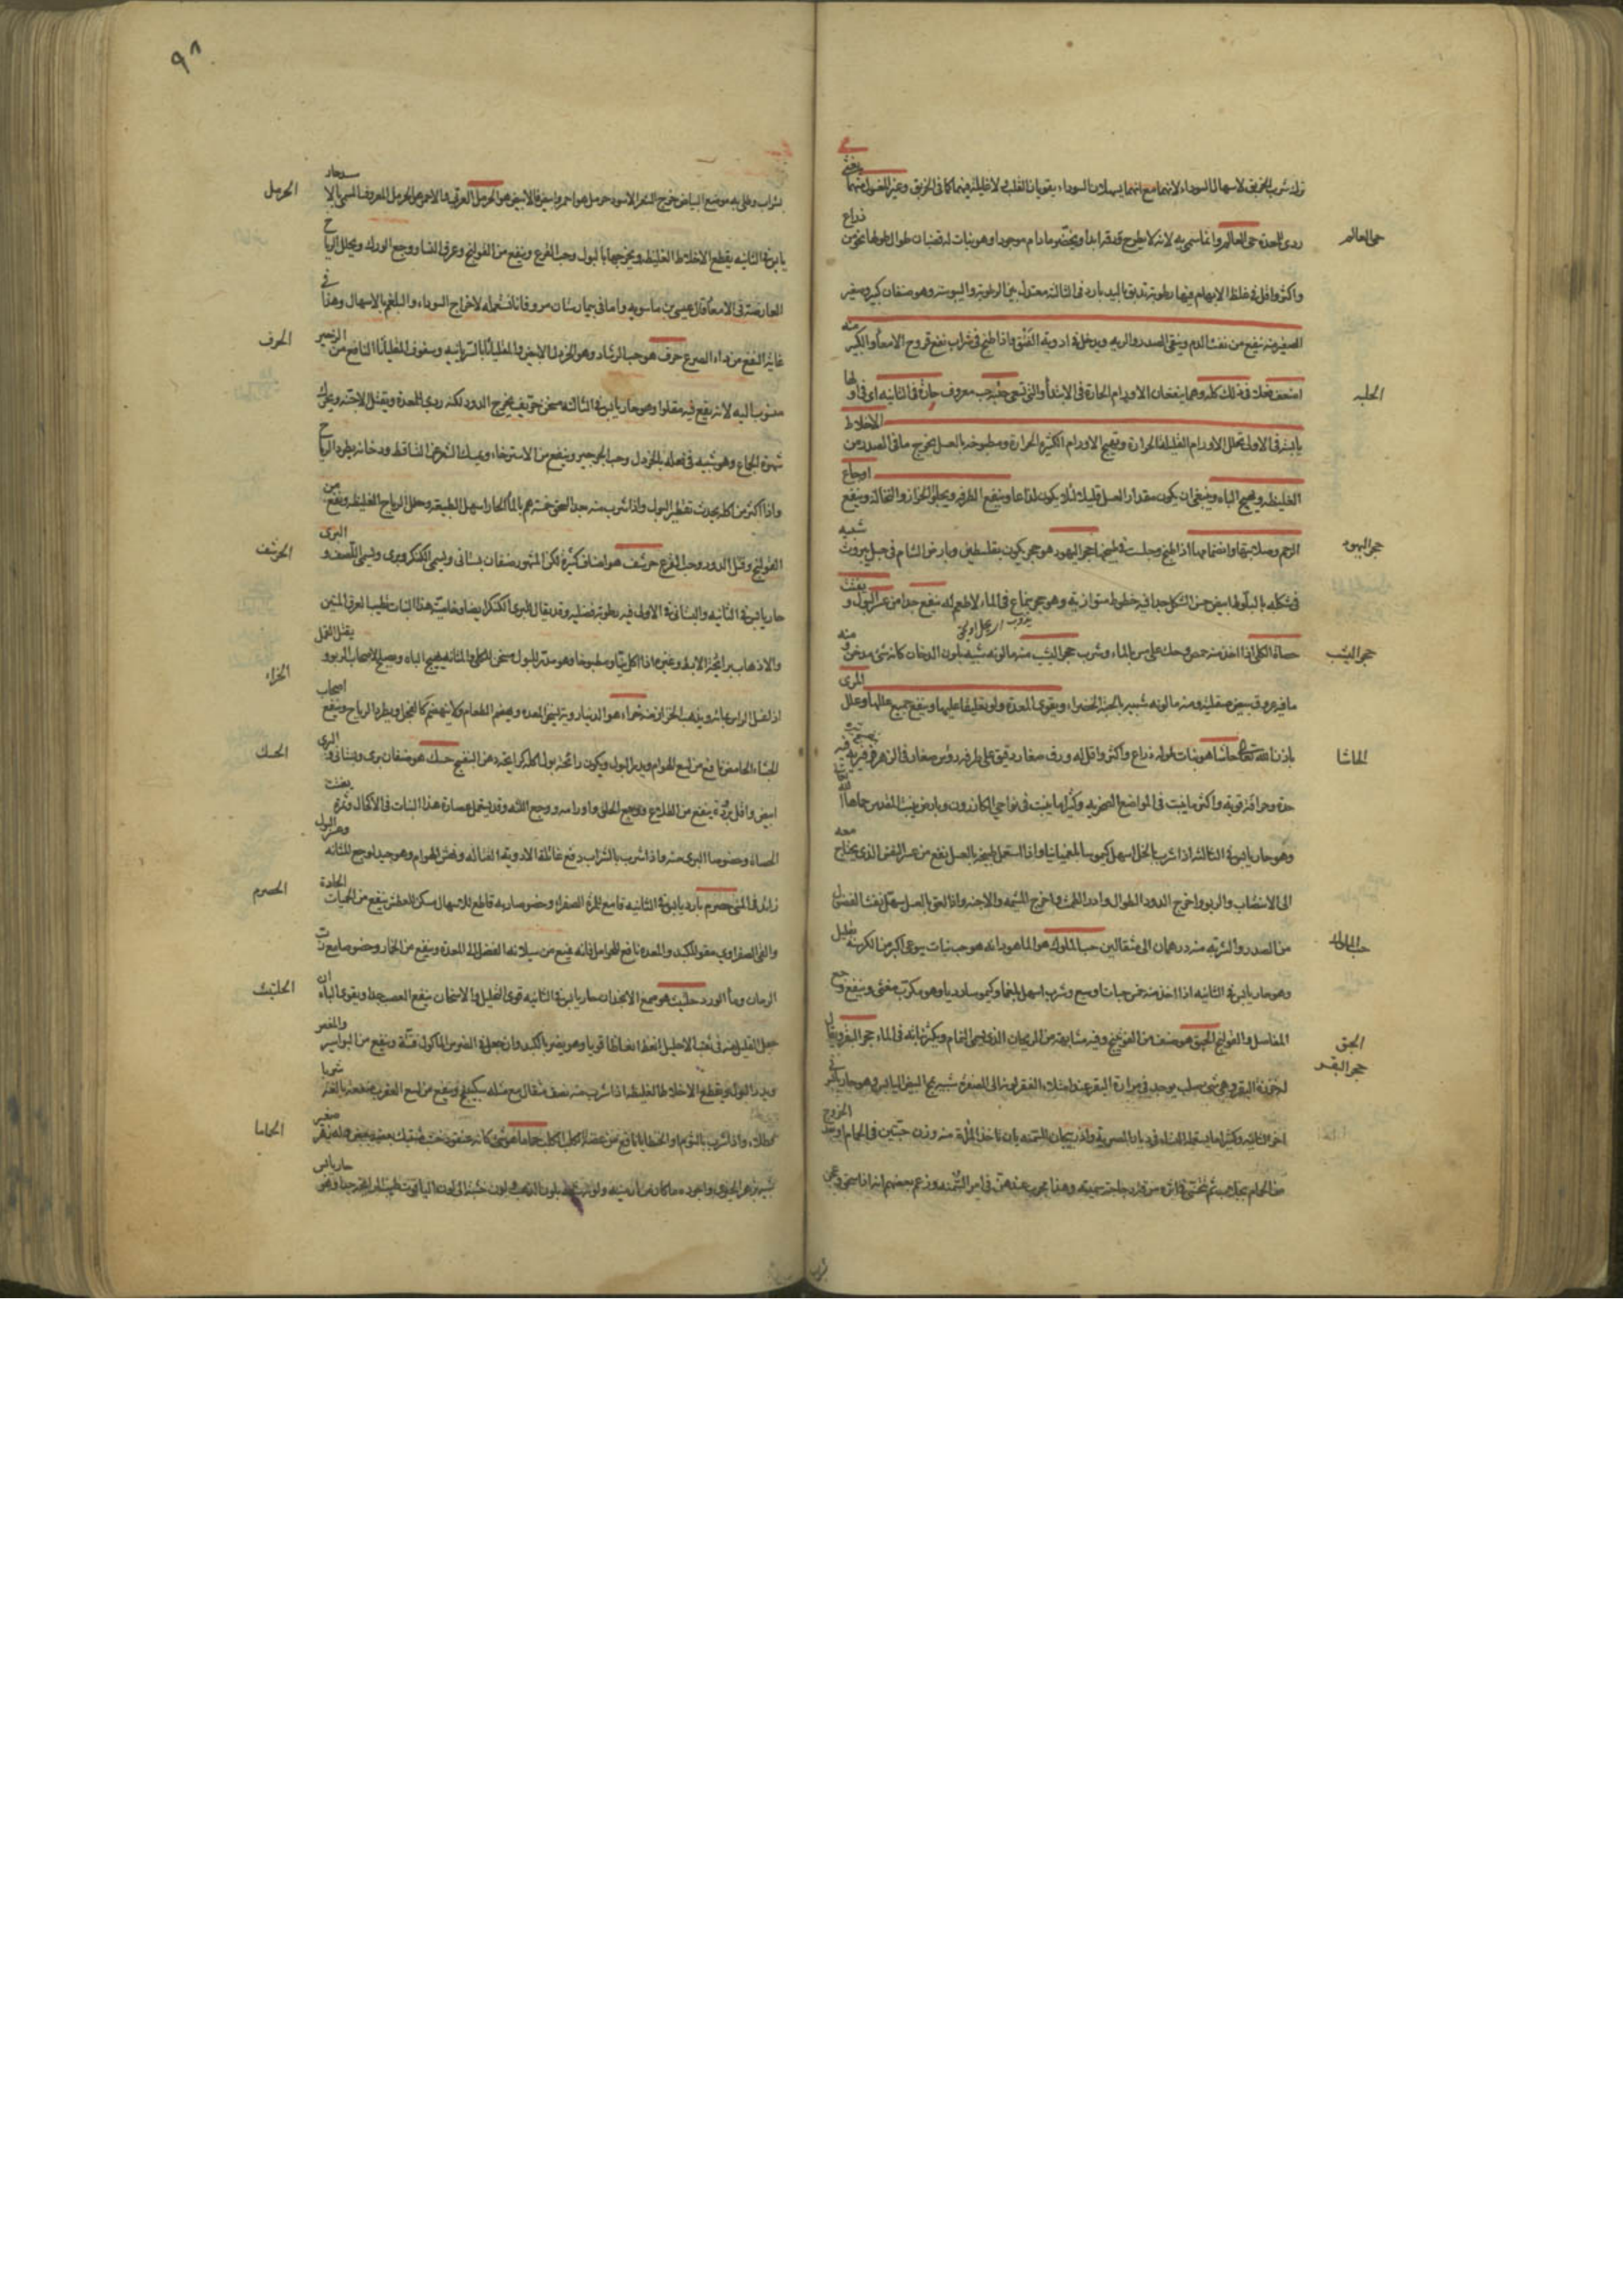 ترك شرب الخربق لاسهال السوداء لانهما مع انهما يسهلان السوداء يقويان القلب لا غايلة فيهما كما في الخربق وغير المغسول منهما يغثي
حي العالم
ردي للمعدة حي العالم وانما سمي به لانه لا يطرح ورقه ابدا ما دام موجودا وهو نبات له قضبان طولها نحو من ذراع
واكثر واقل في غلظ الابهام فيها رطوبة تدبق باليد بارد في الثالثة معتدل بين الرطوبة واليبوسة وهو صنفان كبير وصغير
الصغير منه ينفع من نفث الدم وينقي الصدر والرية ويدخل في ادوية الفتق واذا طبخ في شراب نفع قروح الامعاء والكبير منه
الحلبه
اضعف فعلا في ذلك كله وهما ينفعان الاورام الحارة في الابتداء حلبه حب معروف حارة في الثانيه
يابسة في الاولى تحلل الاورام القليلة الحرارة وتهيج الاورام الكثيرة الحرارة ومطبوخه بالعسل يخرج ما في الصدر من الاخلاط
الغليظه ويهيج الباه وينبغي ان يكون مقدار العسل قليلا لئلا يكون لذاعا وينفع الطرفه ويجلو الحزاز والنخالة وينفع اوجاع
حجر اليهود
الرحم وصلابتها وانضمامها اذا طبخ وجلست في طبيخها حجر اليهود هو حجر يكون بفلسطين وبارض الشام في جبل بيروت شبيه
في شكله بالبلوط ابيض حسن الشكل جدا فيه خطوط متوازية وهو حجر ينماع في الماء لا طعم له ينفع جدا من عسر البول و
حجر اليشب
حصاة الكلى اذا اخذ منه حمصة وحك على مسن بالماء وشرب حجر اليشب منه ما لونه شبيه بلون الدخان كانه شي مدخن و منه
ما فيه عروق بيض صقيلة ومنه ما لونه شبيه بالحبة الخضراء ويقوي المعدة ولو تعليقا عليها وينفع جميع عللها وعلل المري
الحاشا
باذن الله تعالى حاشا هو نبات طوله ذراع واكثر واقل له ورق صغار دقيق على طرفه رؤس صغار
حدة وحرافة قوية واكثر ما ينبت في المواضع الصخريه وكثيرا ما ينبت في نواحي الكازرون وبارض بيت المقدس
وهو حار يابس في الثالثة اذا شرب بالخل اسهل كيموسا بلغميا واذا استعمل طبيخه بالعسل نفع من عسر النفس الذي يحتاج معه
الى الانتصاب والربو واخرج الدود الطوال وادر الطمث واخرج المشيمه والاجنه واذا لعق بالعسل سهل نفث الفضول
حب الملوك
من الصدر والشربه منه درهمان الى مثقالين حب الملوك هو الماهودانه هو حب نبات يتوعي اكبر من الكرسنه بقليل
وهو حار يابس في الثانيه اذا اخذ منه خمس حبات او سبع وشرب اسهل بلغما وكيموسا رديا وهو مكرب مغثي وينفع وجع
الحبق
المفاصل والقولنج الحبق هو صنف من الفودنج وفيه مشابهة من الريحان الذي يسمى النمام ويكثر نباته في الماء حجر البقر ويقال
حجر البقر
له خرزة البقر وهي شي صلب يوجد في مرارة البقر عند امتلاء القمر لونه الى الصفرة شبيه بمح البيض اليابس وهو حار يابس في
اخر الثانيه وكثيرا ما يستعمله النساء في ديار المصرية واذربيجان للتسمنه بان تاخذ المراة منه وزن حبتين في الحمام او عند الخروج
من الحمام بجلاب ثم تتحسى في اثره مرق دجاجة سمينة وهذا مجرب عندهن في امر التسمنه وزعم بعضهم انه اذا سحق وعجن
٩٨
الحرمل
بشراب وطلي به موضع البياض خرج الشعر الاسود حرمل هو احمر وابيض فالابيض هو الحرمل العربي والاحمر هو الحرمل المعروف المسمى بالا
يابس في الثانيه يقطع الاخلاط الغليظه ويخرجها بالبول وحب القرع وينفع من القولنج وعرق النسا ووجع الورك ويحلل الرياح
العارضة في الامعاء قال عيسى بن ماسويه واما في بيمارستان مرو فانا نستعمله لاخراج السوداء والبلغم بالاسهال وهذا في
الحرف
غاية النفع من داء الصرع حرف هو حب الرشاد وهو الخردل الابيض والمقلياثا بالسريانيه وسفوف المقلياثا النافع من الزحير
منسوب اليه لانه يقع فيه مقلوا وهو حار يابس في الثالثه مسخن حريف يخرج الدود لكنه ردي للمعدة ويقتل الاجنه ويحرك
شهوة الجماع وهو شبيه في فعله بالخردل وحب الجرجير وينفع من الاسترخاء ويمسك الشعر المتساقط ودخانه يطرد الرياح
واذا اكثر من اكله يحدث تقطير البول واذا شرب منه خمسة درهم بالماء الحار اسهل الطبيعة وحلل الرياح الغليظه ونفع من
الحرشف
القولنج وقتل الدود وحب القرع حرشف هو اصناف كثيرة لكن المشهور صنفان بستاني ويسمى الكنكر وبري
حار يابس في الثانيه والبستاني في الاولى فيه رطوبة فضلية وقد يقال للبري الكنكر ايضا وخاصية هذا النبات تطييب العرق المنتن
الحزاء
والاذهاب برائحة الابط وغيره اذا اكل نيا ومطبوخا وهو مدر للبول مسخن للكلى والمثانه يهيج الباه وصالح لاصحاب الربو يقتل القمل
اذا غسل الراس بمائه ويذهب الحزاز منه حزاء هو الدينارويه يسخن المعده ويهضم الطعام ويطرد الرياح وينفع اصحاب
الحسك
الجشاء الحامض نافع من لسع الهوام ويدر البول ويكون رائحة بول اكله كرائحة دهن البنفسج حسك هو صنفان بري وبستاني و البري
ابيض واقل برودة ينفع من القلاع ووجع الحلق واورامه ووجع اللثه وقد يستعمل عصارة هذا النبات في الاكحال وثمره يفتت
الحصاة وخصوصا البري منه واذا شرب بالشراب دفع غائلة الادوية القتاله ونهش الهوام وهو جيد لوجع المثانه وعسر البول
الحصرم
زائد في المني حصرم بارد يابس في الثانيه قامع للمرة الصفراء وخصوصا ربه قاطع للاسهال مسكن للعطش ينفع من الحميات الحادة
والقي الصفراوي مقو للكبد والمعدة نافع للحوامل فانه يمنع من سيلان الفضل الى المعدة وينفع من الخمار وخصوصا مع رب
الحلتيت
الرمان وماء الورد حلتيت هو صمغ الانجدان حار يابس في الثانيه قوي التحليل والاسخان ينفع العصب جدا ويقوي الباه ان
جعل القليل منه في ثقب الاحليل انعظ انعاظا قويا وهو يضر بالكبد وان جعل في الضرس الماكول فتته وينفع من البواسير والمغص
ويدر البول ويقطع الاخلاط الغليظه اذا شرب منه نصف مثقال مع مثله سكبينج وينفع من لسع العقرب شربا
الحماما
وطلاء واذا شرب بالثوم او الخطيانا نافع من عضة الكلب الكلب حماما هو شي كانه عنقود خشب مشتبك بعضه ببعض وله زهر صغير